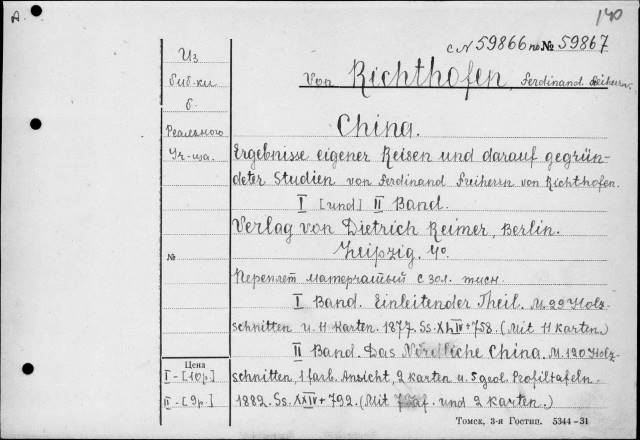 А.
140
с N 59866 по № 59867
Из
биб-ки
б.
Реального
Уч-ща.
von Richthofen, Ferdinand Freiherrn.
China.
Ergebnisse eigener Reisen und darauf gegrün-
deter Studien von Ferdinand Freiherrn von Richthofen.
I [und] II Band.
Verlag von Dietrich Reimer, Berlin.
Leipzig. 4o.
№
Переплет матерчатый с зол. тисн.
I Band. Einleitender Theil. M. 29 Holz-
schnitten u. 11 Karten. 1877. Ss. XLIV + 758. (Mit 11 Karten.)
II Band. Das Nördliche China. M. 120 Holz-
Цена
I - [10р.]
schnitten, 1 farb. Ansicht, 2 Karten u. 5 geol. Profiltafeln.
II - [9р.]
1882. Ss. XXIV + 792. (Mit und 2 Karten.)
Томск, 3-я Гостип. 5344-31